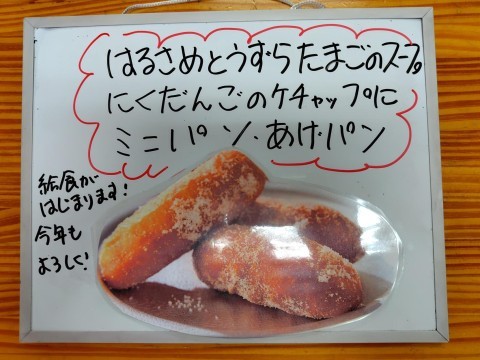 はるさめとうずらたまごのスープ
にくだんごのケチャップに
ミニパン・あげパン
給食が
はじまります!
今年も
よろしく!